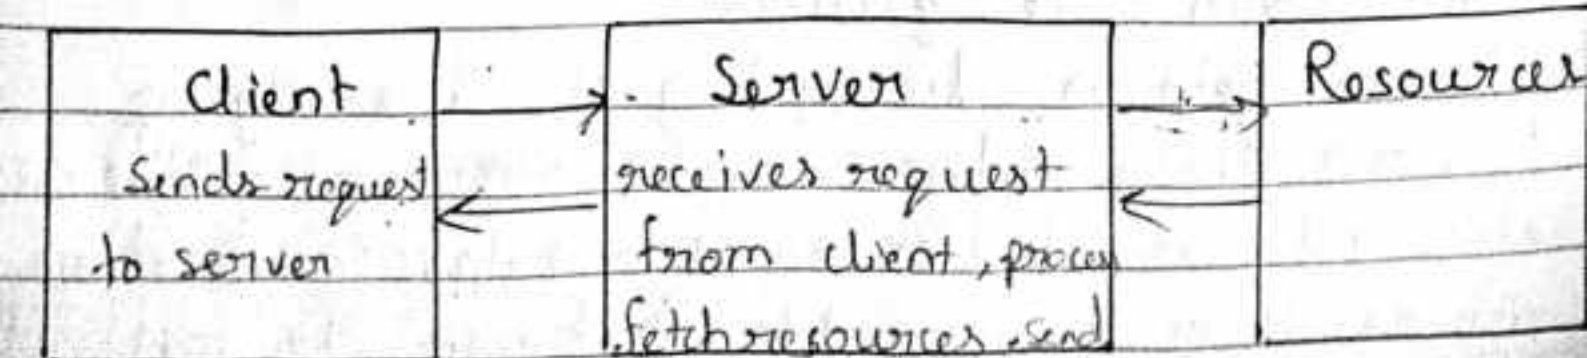 Client
Sends request
to server
Server
receives request
from client, process
fetch resources, send
Resources